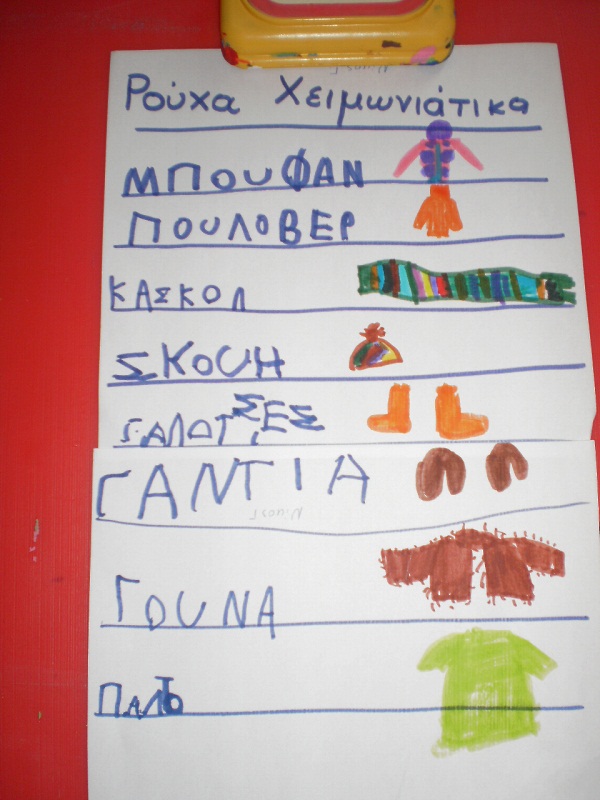 Ρούχα Χειμωνιάτικα
ΜΠΟΥΦΑΝ
ΠΟΥΛΟΒΕΡ
ΚΑΣΚΟΛ
ΣΚΟΥΗ
ΓΑΛΟΤΣΕΣ
ΓΑΝΤΙΑ
ΓΟΥΝΑ
ΠΑΛΤΟ